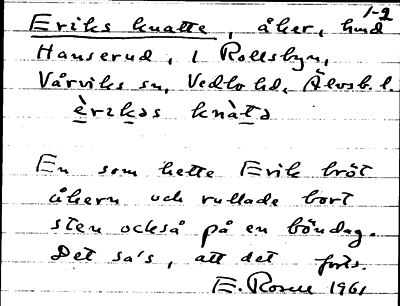 1-2
Eriks knatte, åker, hmd
Hanserud, i Rollsbyn,
Vårviks sn, Vedbo hd, Älvsb. l.
èrikəs knàtə
En som hette Erik bröt
åkern och rullade bort
sten också på en böndag.
Det sa's, att det forts.
E. Rosell 1961